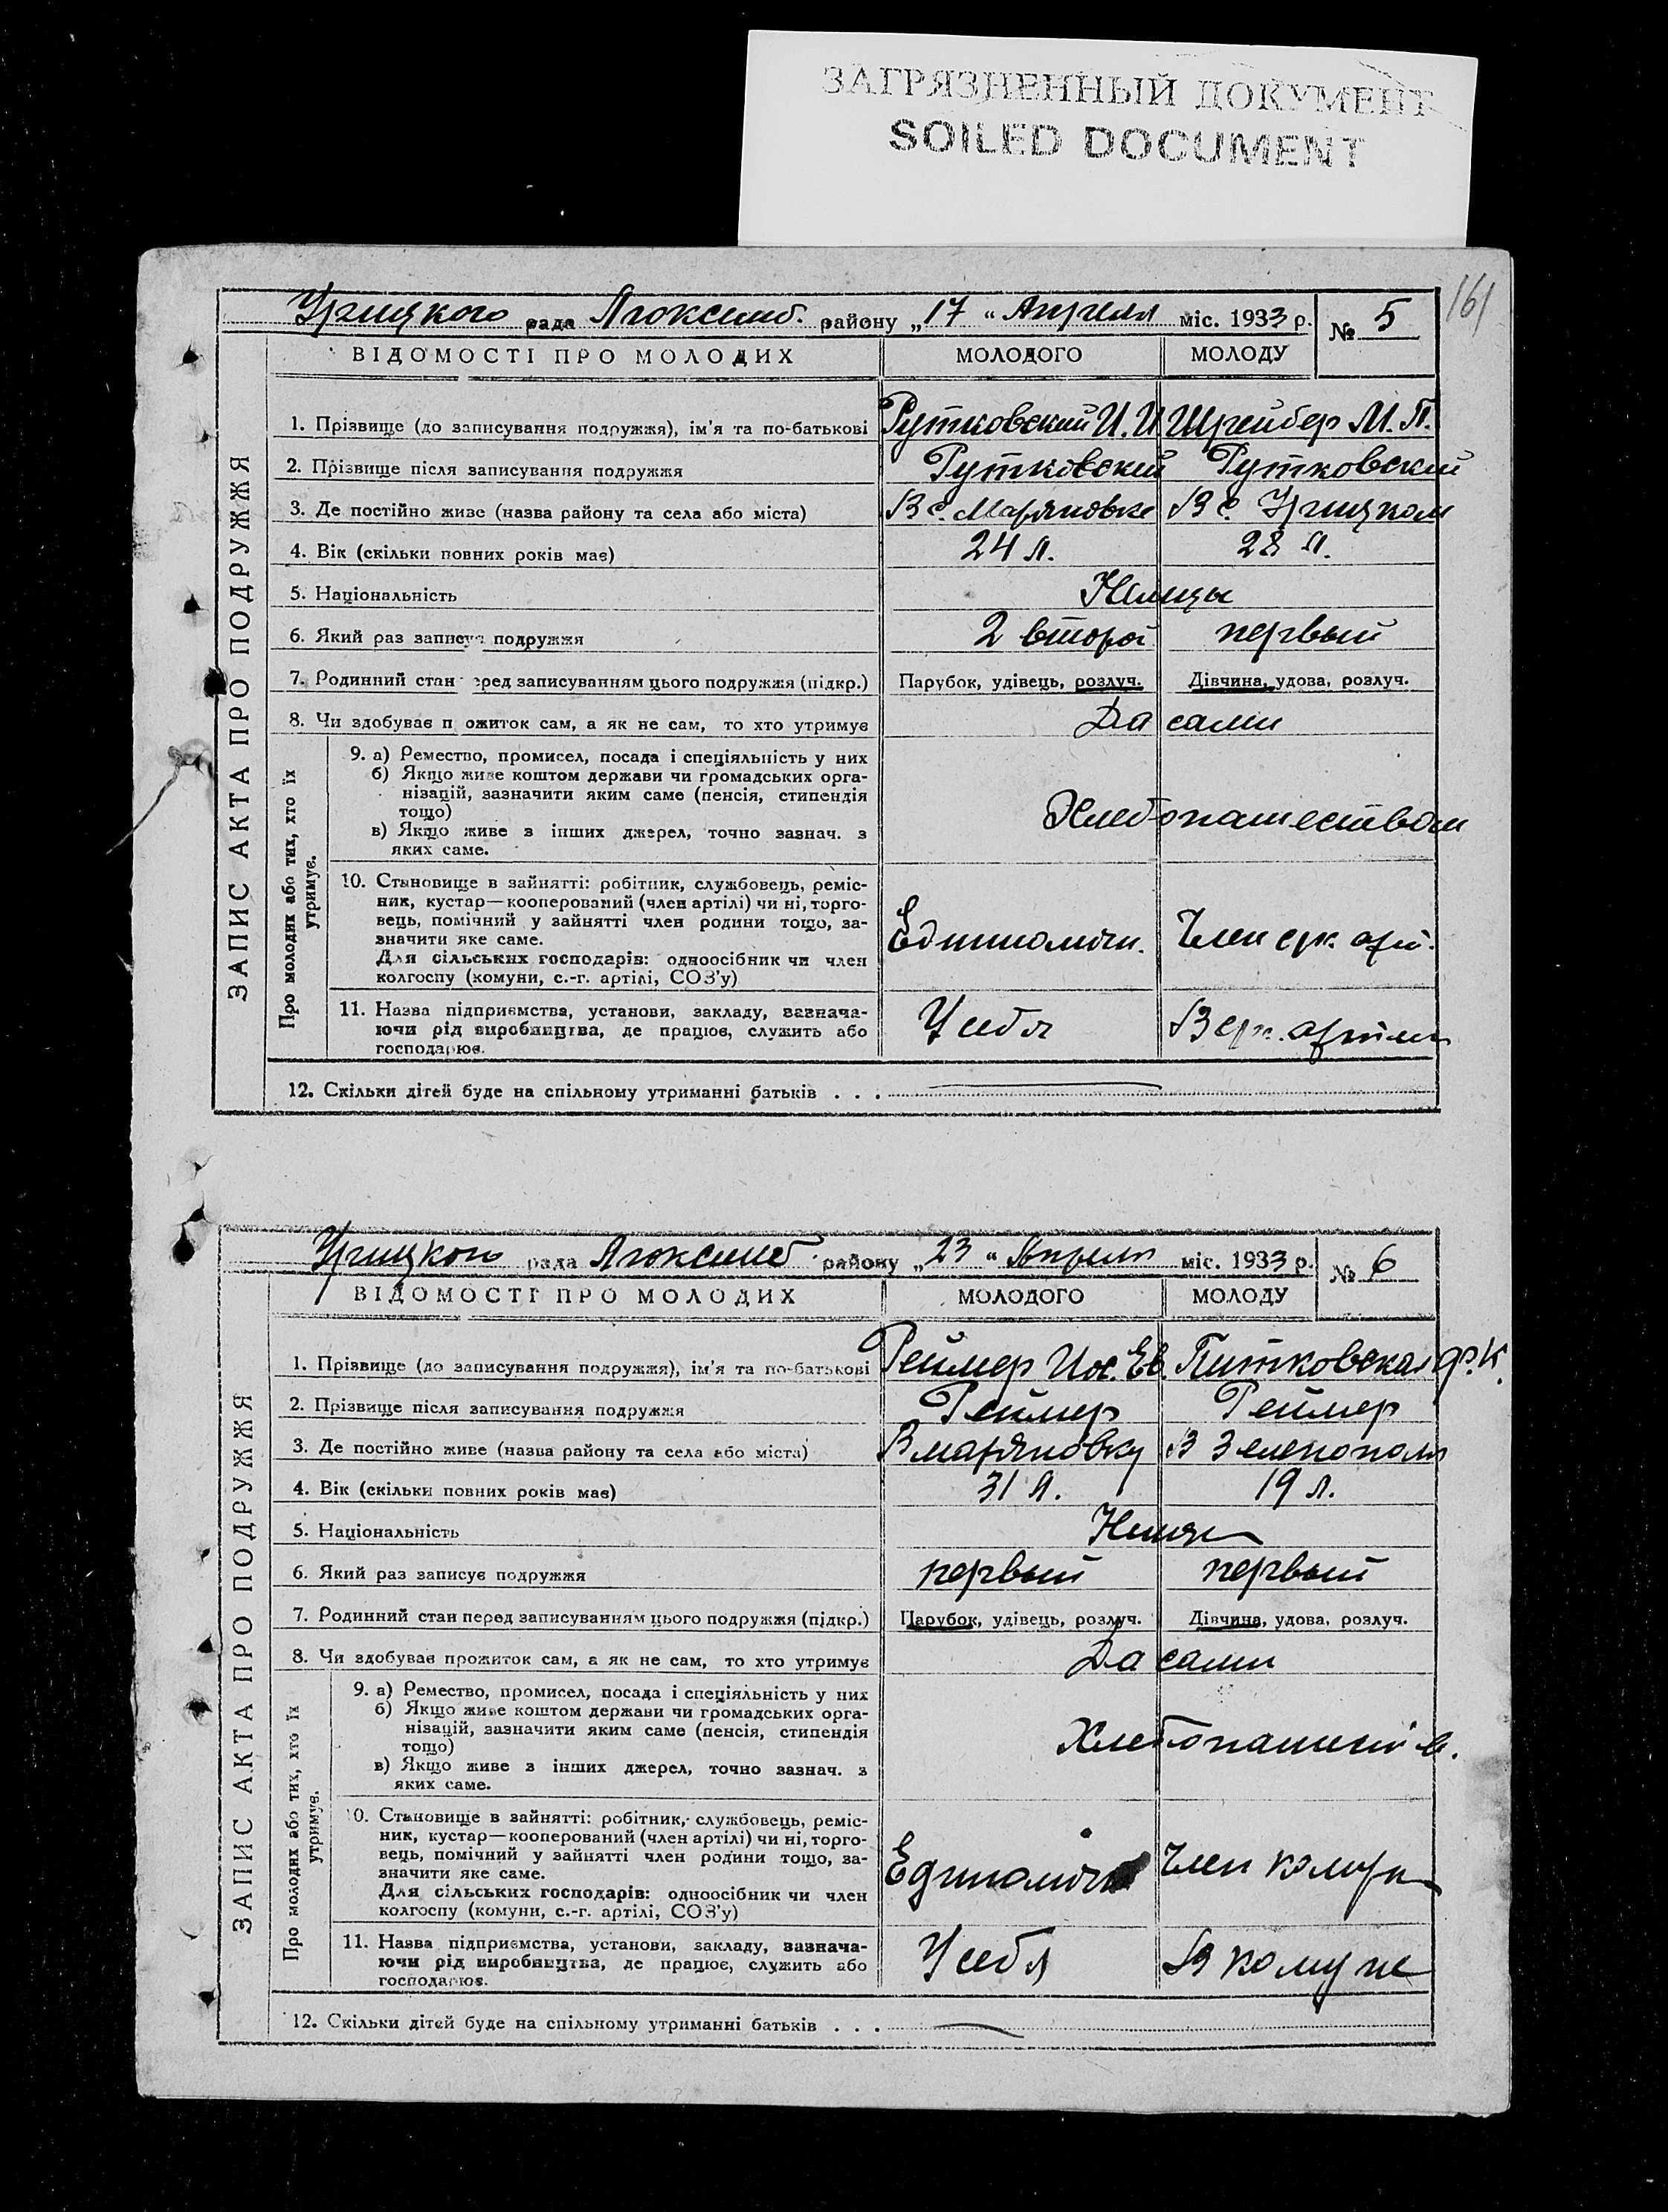 ЗАГРЯЗНЕННЫЙ ДОКУМЕНТ
SOILED DOCUMENT
161
Урицкого рада Люксемб. району „17“ Апреля міс. 1933 р. № 5
ВІДОМОСТІ ПРО МОЛОДИХ МОЛОДОГО МОЛОДУ
ЗАПИС АКТА ПРО ПОДРУЖЖЯ
1. Прізвище (до записування подружжя), ім'я та по-батькові Рутковский И. И Шрейбер М. П.
2. Прізвище після записування подружжя Рутковский Рутковский
3. Де постійно живе (назва району та села або міста) В с. Маряновке В с. Урицком
4. Вік (скільки повних років має) 24 л. 28 л.
5. Національність Немцы
6. Який раз записує подружжя 2 второй первый
7. Родинний стан перед записуванням цього подружжя (підкр.) Парубок, удівець, розлуч. Дівчина, удова, розлуч.
8. Чи здобуває прожиток сам, а як не сам, то хто утримує Да сами
Про молодих або тих, хто їх утримує.
9. а) Ремество, промисел, посада і спеціяльність у них
б) Якщо живе коштом держави чи громадських орга-
нізацій, зазначити яким саме (пенсія, стипендія
тощо)
в) Якщо живе з інших джерел, точно зазнач. з
яких саме.
Хлебопашеством
10. Становище в зайнятті: робітник, службовець, реміс-
ник, кустар—кооперований (член артілі) чи ні, торго-
вець, помічний у зайнятті член родини тощо, за-
значити яке саме.
Для сільських господарів: одноосібник чи член
колгоспу (комуни, с.-г. артілі, СОЗ'у)
Единоличн. Член с/х. арт.
11. Назва підприємства, установи, закладу, зазнача-
ючи рід виробництва, де працює, служить або
господарює.
У себя В с/х. артели
12. Скільки дітей буде на спільному утриманні батьків . . .
Урицкого рада Люксемб. району „23“ Апреля міс. 1933 р. № 6
ВІДОМОСТІ ПРО МОЛОДИХ МОЛОДОГО МОЛОДУ
ЗАПИС АКТА ПРО ПОДРУЖЖЯ
1. Прізвище (до записування подружжя), ім'я та по-батькові Реймер Иос. Ев. Питковская Ф. К.
2. Прізвище після записування подружжя Реймер Реймер
3. Де постійно живе (назва району та села або міста) В маряновку В Зеленополи
4. Вік (скільки повних років має) 31 л. 19 л.
5. Національність Немцы
6. Який раз записує подружжя первый первый
7. Родинний стан перед записуванням цього подружжя (підкр.) Парубок, удівець, розлуч. Дівчина, удова, розлуч.
8. Чи здобуває прожиток сам, а як не сам, то хто утримує Да сами
Про молодих або тих, хто їх утримує.
9. а) Ремество, промисел, посада і спеціяльність у них
б) Якщо живе коштом держави чи громадських орга-
нізацій, зазначити яким саме (пенсія, стипендія
тощо)
в) Якщо живе з інших джерел, точно зазнач. з
яких саме.
10. Становище в зайнятті: робітник, службовець, реміс-
ник, кустар—кооперований (член артілі) чи ні, торго-
вець, помічний у зайнятті член родини тощо, за-
значити яке саме.
Для сільських господарів: одноосібник чи член
колгоспу (комуни, с.-г. артілі, СОЗ'у)
Член
11. Назва підприємства, установи, закладу, зазнача-
ючи рід виробництва, де працює, служить або
господарює.
У себя В комуне
12. Скільки дітей буде на спільному утриманні батьків . . .